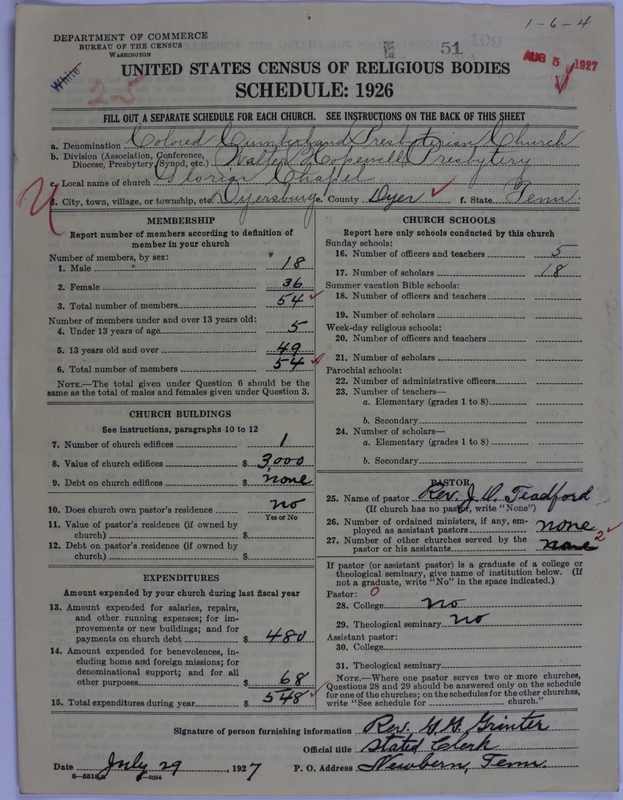 1-6-4
DEPARTMENT OF COMMERCE
BUREAU OF THE CENSUS
WASHINGTON
51 109
AUG 5 1927
White
25
UNITED STATES CENSUS OF RELIGIOUS BODIES
SCHEDULE: 1926
FILL OUT A SEPARATE SCHEDULE FOR EACH CHURCH. SEE INSTRUCTIONS ON THE BACK OF THIS SHEET
a. Denomination Colored Cumberland Presbyterian Church
b. Division (Association, Conference, Diocese, Presbytery, Synod, etc.) Walter Hopewell Presbytery
c. Local name of church Glorias Chapel
d. City, town, village, or township, etc. Dyersburg e. County Dyer f. State Tenn.
MEMBERSHIP
Report number of members according to definition of
member in your church
Number of members, by sex:
1. Male 18
2. Female 36
3. Total number of members 54
Number of members under and over 13 years old:
4. Under 13 years of age 5
5. 13 years old and over 49
6. Total number of members 54
NOTE.—The total given under Question 6 should be the
same as the total of males and females given under Question 3.
CHURCH BUILDINGS
See instructions, paragraphs 10 to 12
7. Number of church edifices 1
8. Value of church edifices $ 3,000
9. Debt on church edifices $ none
10. Does church own pastor's residence no
Yes or No
11. Value of pastor's residence (if owned by
church) $
12. Debt on pastor's residence (if owned by
church) $
EXPENDITURES
Amount expended by your church during last fiscal year
13. Amount expended for salaries, repairs,
and other running expenses; for im-
provements or new buildings; and for
payments on church debt $ 480
14. Amount expended for benevolences, in-
cluding home and foreign missions; for
denominational support; and for all
other purposes $ 68
15. Total expenditures during year $ 548
CHURCH SCHOOLS
Report here only schools conducted by this church
Sunday schools:
16. Number of officers and teachers 5
17. Number of scholars 18
Summer vacation Bible schools:
18. Number of officers and teachers
19. Number of scholars
Week-day religious schools:
20. Number of officers and teachers
21. Number of scholars
Parochial schools:
22. Number of administrative officers
23. Number of teachers—
a. Elementary (grades 1 to 8)
b. Secondary
24. Number of scholars—
a. Elementary (grades 1 to 8)
b. Secondary
PASTOR
25. Name of pastor Rev. J. W. Teadford
(If church has no pastor, write "None")
26. Number of ordained ministers, if any, em-
ployed as assistant pastors none
27. Number of other churches served by the
pastor or his assistants none 2
If pastor (or assistant pastor) is a graduate of a college or
theological seminary, give name of institution below. (If
not a graduate, write "No" in the space indicated.)
Pastor: 0
28. College no
29. Theological seminary no
Assistant pastor:
30. College
31. Theological seminary
NOTE.—Where one pastor serves two or more churches,
Questions 28 and 29 should be answered only on the schedule
for one of the churches; on the schedules for the other churches,
write "See schedule for church."
Signature of person furnishing information Rev. G. G. Grinter
Official title Stated Clerk
Date July 29, 1927 P. O. Address Newbern, Tenn.